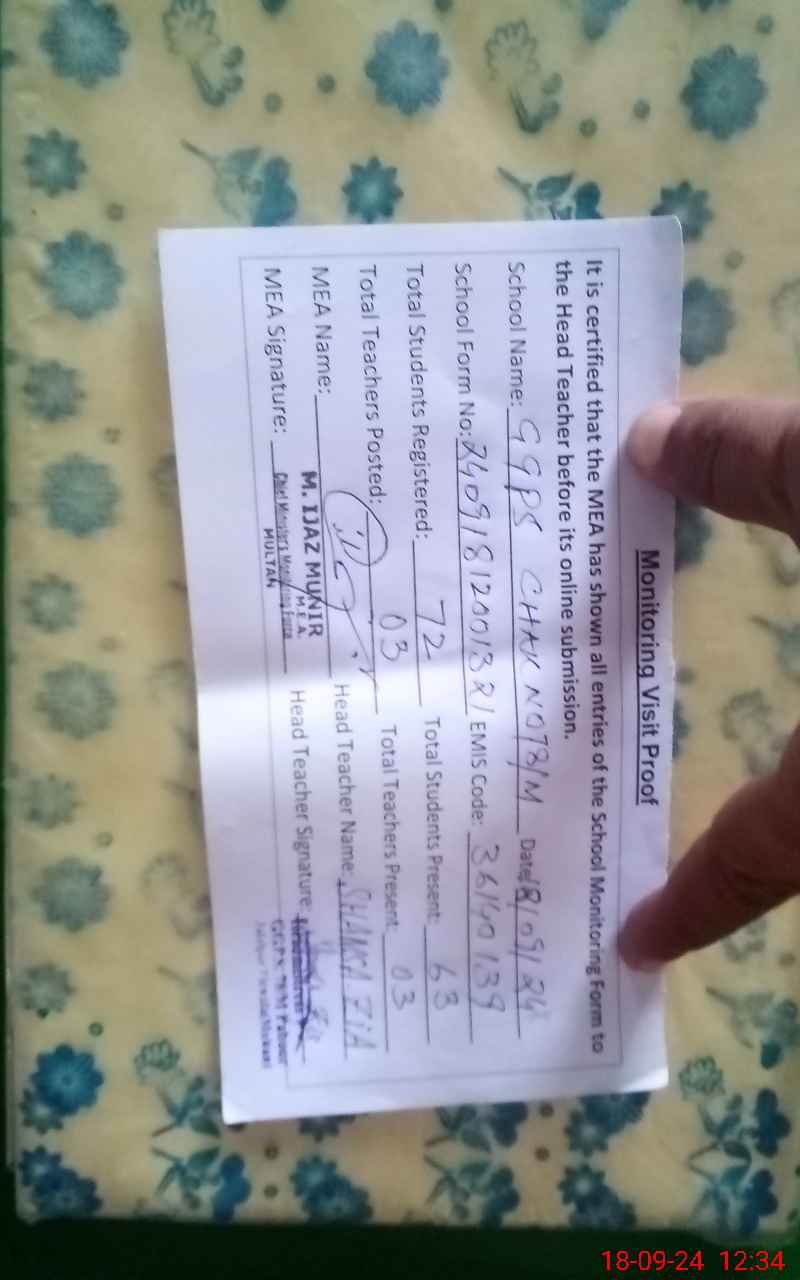 Monitoring Visit Proof
It is certified that the MEA has shown all entries of the School Monitoring Form to
the Head Teacher before its online submission.
School Name: GGPS CHAK NO 78/M Date 18/09/24
School Form No: 24091812001321 EMIS Code: 36140139
Total Students Registered: 72 Total Students Present: 63
Total Teachers Posted: 03 Total Teachers Present: 03
MEA Name: M. IJAZ MUNIR Head Teacher Name: ZIA
M.E.A.
MEA Signature: Chief Minister's Monitoring Force Head Teacher Signature:
MULTAN
18-09-24 12:34